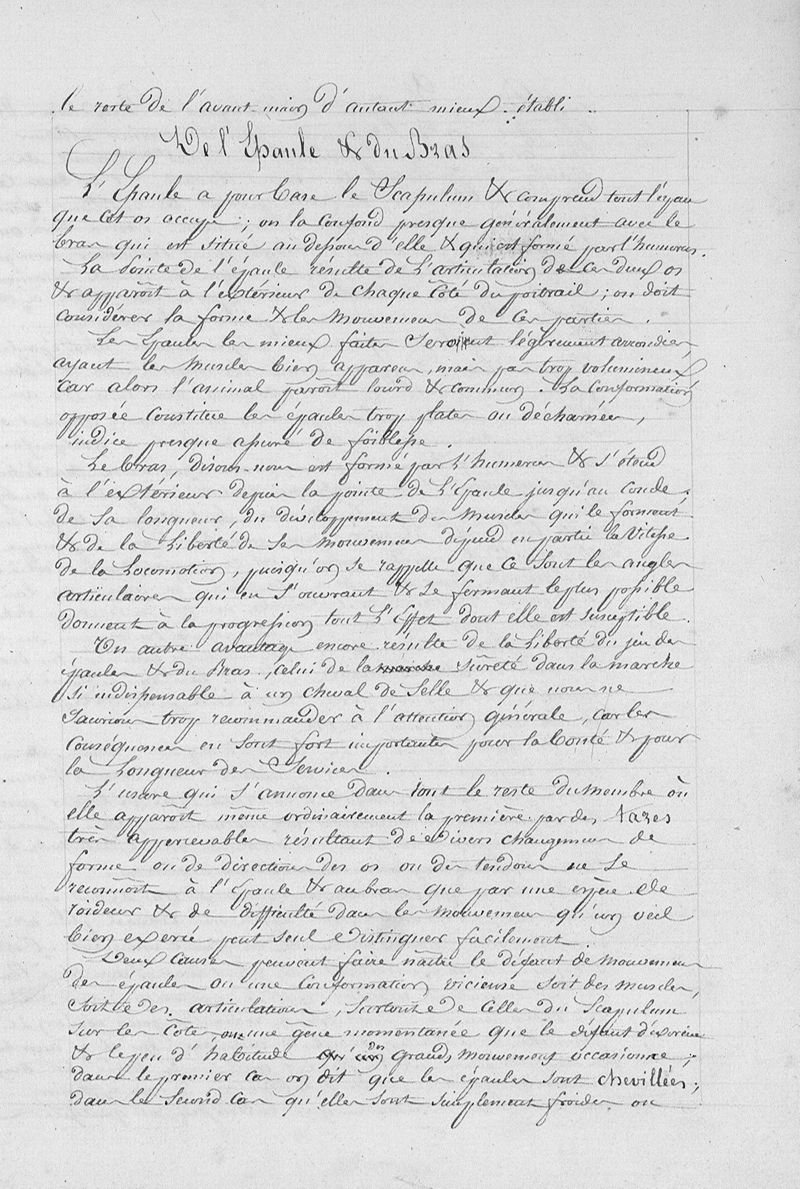 le reste de l'avant-main d'autant mieux établi.
De l'Épaule & du Bras
L'Épaule a pour base le Scapulum & comprend tout l'espace
que cet os occupe ; on la confond presque généralement avec le
bras qui est situé au dessous d'elle & qui est formé par l'humerus.
La pointe de l'épaule résulte de l'articulation de ces deux os
& apparoit à l'extérieur de chaque côté du poitrail ; on doit
considérer la forme & les mouvemens de ces parties.
Les Épaules les mieux faites seroient légèrement arrondies
ayant les muscles bien apparens, mais pas trop volumineux
car alors l'animal paroit lourd & commun. La conformation
opposée constitue les épaules trop plates ou décharnées,
indice presque assuré de foiblesse.
Le bras, disons-nous est formé par l'humerus & s'étend
à l'extérieur depuis la pointe de l'Épaule jusqu'au coude.
de sa longueur, du développement des muscles qui le forment
& de la liberté de ses mouvemens dépend en partie la vitesse
de la locomotion, puisqu'on se rappelle que ce sont les angles
articulaires qui en s'ouvrant & se fermant le plus possible
donnent à la progression tout l'effet dont elle est susceptible.
Un autre avantage encore résulte de la liberté du jeu des
épaules & du Bras, celui de la marche sûreté dans la marche
si indispensable à un cheval de selle & que nous ne
saurions trop recommander à l'attention générale, car les
conséquences en sont fort importantes pour la bonté & pour
la longueur des Services.
L'usure qui s'annonce dans tout le reste du membre où
elle apparoit même ordinairement la première par des tares
très appercevables résultant de divers changemens de
forme ou de direction des os ou des tendons ne se
reconnoit à l'épaule & au bras que par une espèce de
roideur & de difficulté dans les mouvemens qu'un œil
bien exercé peut seul distinguer facilement.
Deux causes peuvent faire naitre le défaut de mouvemens
des épaules ou une conformation vicieuse soit des muscles,
soit des articulations, surtout de celles du Scapulum
sur les côtes, ou une gêne momentanée que le défaut d'exercice
& le peu d'habitude des grands mouvemens occasionne ;
dans le premier cas on dit que les épaules sont chevillées ;
dans le second cas qu'elles sont simplement froides ou